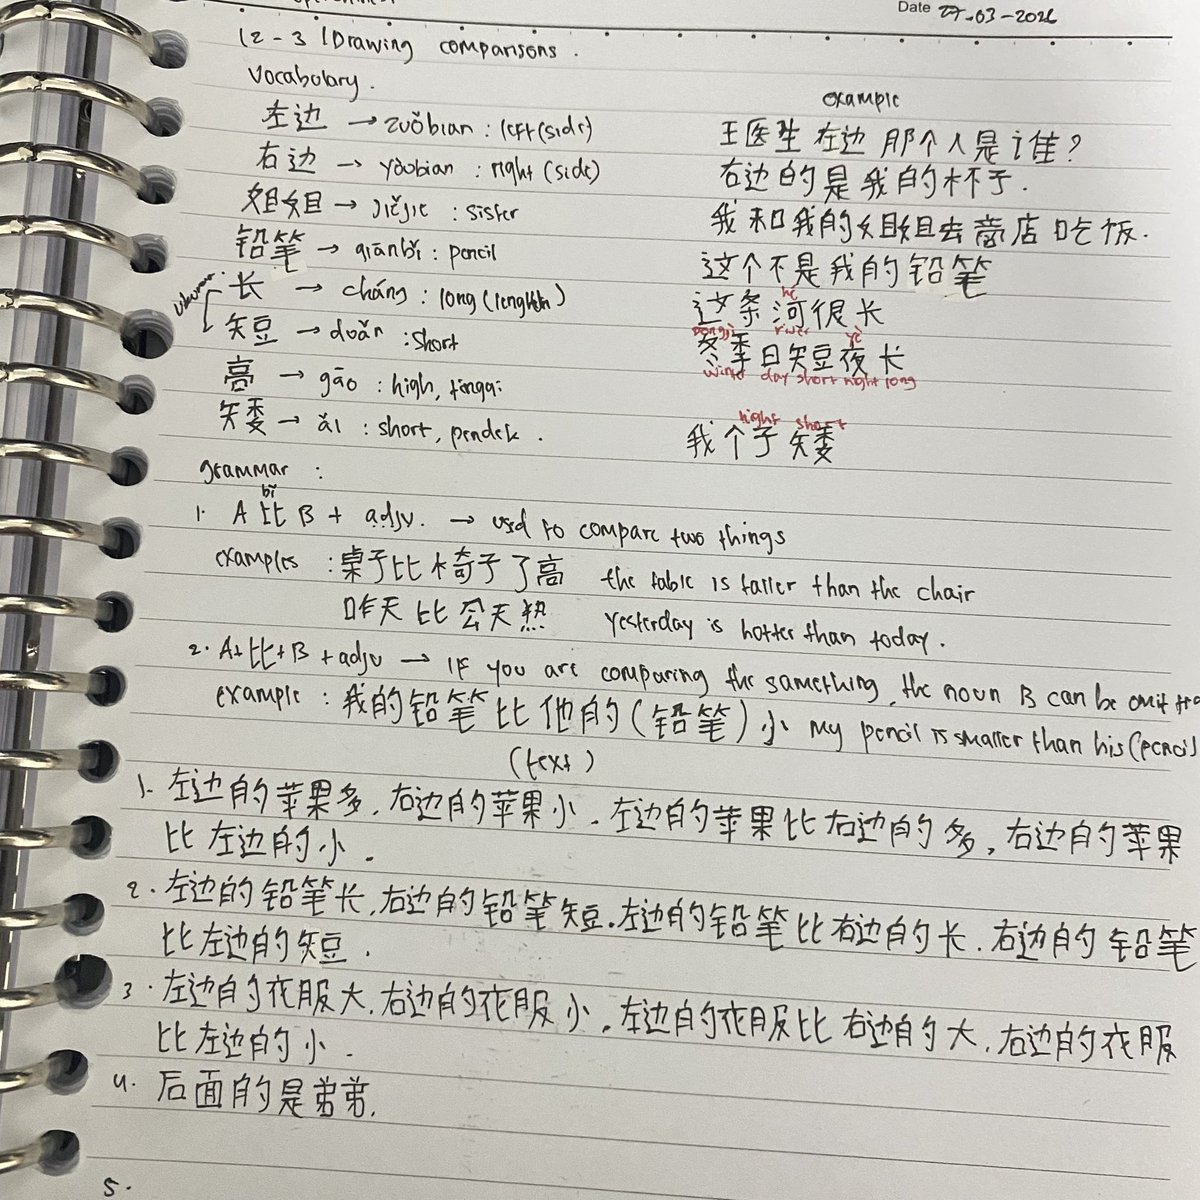 Date 27-03-2026
12-3 | Drawing comparisons.
Vocabolary.
example
左边 → zuǒbian : left (side) 王医生左边那个人是谁?
右边 → yòubian : right (side) 右边的是我的杯子.
姐姐 → jiějie : sister 我和我的姐姐去商店吃饭.
铅笔 → qiānbǐ : pencil 这个不是我的铅笔
长 → cháng : long (lenghth) 这条河很长
hé
river
短 → duǎn : short 冬季日短夜长
dongji yè
winter day short night long
高 → gāo : high, tinggi
矮 → ǎi : short, pendek. 我个子矮
hight short
grammar :
bǐ
1. A 比 B + adjv. → used to compare two things
examples : 桌子比椅子了高 the table is taller than the chair
昨天比今天热 yesterday is hotter than today.
2. A+比+B+adjv → IF you are comparing the samething, the noun B can be omit
example : 我的铅笔比他的(铅笔)小 my pencil is smaller than his (pencil)
(text)
1. 左边的苹果多, 右边的苹果小. 左边的苹果比右边的多, 右边的苹果
比左边的小.
2. 左边的铅笔长, 右边的铅笔短. 左边的铅笔比右边的长. 右边的铅笔
比左边的短.
3. 左边的衣服大, 右边的衣服小. 左边的衣服比右边的大, 右边的衣服
比左边的小.
4. 后面的是弟弟.
5.